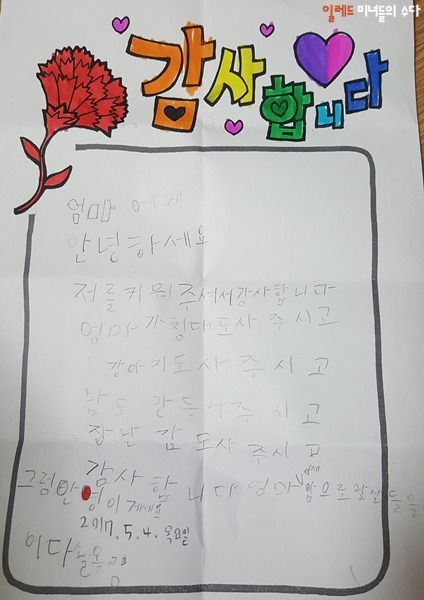 일레드 미녀들의 수다
감사합니다
엄마에게
안녕하세요
저를키워주셔서감사합니다
엄마가침대도사주시고
강아지도사주시고
밥도만들어주시고
장난감도사주시고
감사합니다 엄마
그럼안녕이게세요
앞으로말잘들을
2017.5.4.목요일
이다